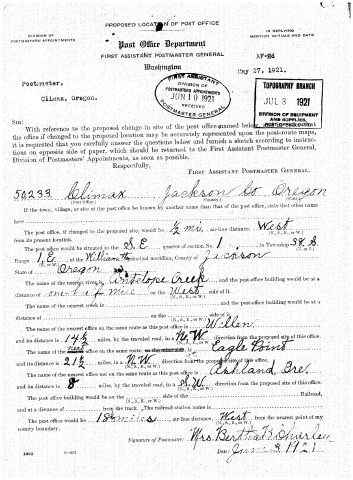 PROPOSED LOCATION OF POST OFFICE
DIVISION OF
POSTMASTERS' APPOINTMENTS
IN REPLYING
MENTION INITIALS AND DATE
Post Office Department
FIRST ASSISTANT POSTMASTER GENERAL
Washington
AF-Ed
May 27, 1921.
FIRST ASSISTANT
DIVISION OF
POSTMASTERS APPOINTMENTS
JUN 10 1921
RECEIVED
POSTMASTER GENERAL
TOPOGRAPHY BRANCH
JUL 3 1921
DIVISION OF EQUIPMENT
AND SUPPLIES,
Postmaster,
Climax, Oregon.
SIR:
With reference to the proposed change in site of the post office named below,
the office if changed to the proposed location may be accurately represented upon the post-route maps,
it is requested that you carefully answer the questions below and furnish a sketch according to instruc-
tions on opposite side of paper, which should be returned to the First Assistant Postmaster General,
Division of Postmasters' Appointments, as soon as possible.
Respectfully,
FIRST ASSISTANT POSTMASTER GENERAL.
50233 Climax Jackson Co Oregon
(Post Office.) (County.) (State.)
If the town, village, or site of the post office be known by another name than that of the post office, state that other name
here
The post office, if changed to the proposed site, would be 1/2 mi air-line distance, West
from its present location. (N., S., E., or W.)
The post office would be situated in the S.E. quarter of section No. 1, in Township 38 S.
Range 1 E., Willamette principal meridian, County of Jackson
State of Oregon
The name of the nearest river is Antelope Creek and the post-office building would be at a
distance of one-half mile on the West side of it.
(N., S., E., or W.)
The name of the nearest creek is and the post-office building would be at a
distance of on the side of it.
(N., S., E., or W.)
The name of the nearest office on the same route as this post office is
and its distance is 14 1/2 miles, by the traveled road, in a N.W. direction from the proposed site of this office.
The name of the next office on the same route is Eagle Point
and its distance is 21 1/2 miles, by the traveled road, in a N.W. direction from the proposed site of this office.
The name of the nearest office not on the same route as this post office is Ashland, Ore
and its distance is 8 miles, by the traveled road, in a S.W. direction from the proposed site of this office.
The post office building would be on the side of the Railroad,
(N., S., E., or W.)
and at a distance of from the track. The railroad station name is
The post office would be 18 miles air-line distance, West from the nearest point of my
county boundary. (N., S., E., or W.)
Signature of Postmaster: Mrs. Bertha B
Date: June 3, 1921